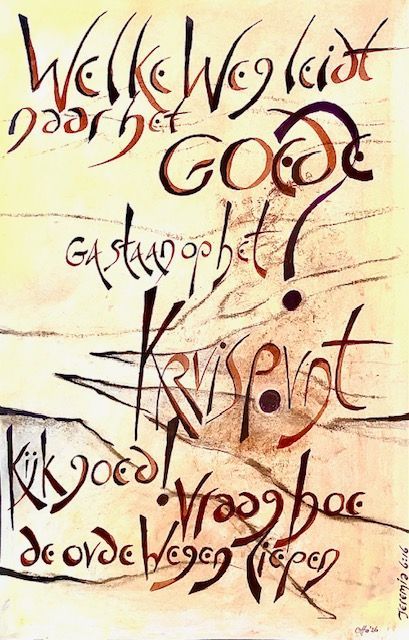 Welke Weg leidt
naar het
GOEDE?
GA staan op het
Kruispunt
Kijk goed!
Vraag hoe
de oude Wegen liepen
Jeremia 6:16